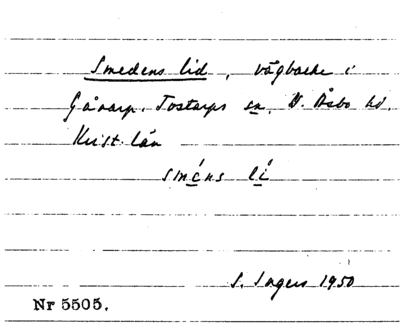 Smedens lid, vägbacke i
Gånarp. Tostarps sn. N. Åsbo hd.
Krist. län
sméns lí
S. Ingers 1950
Nr 5505.